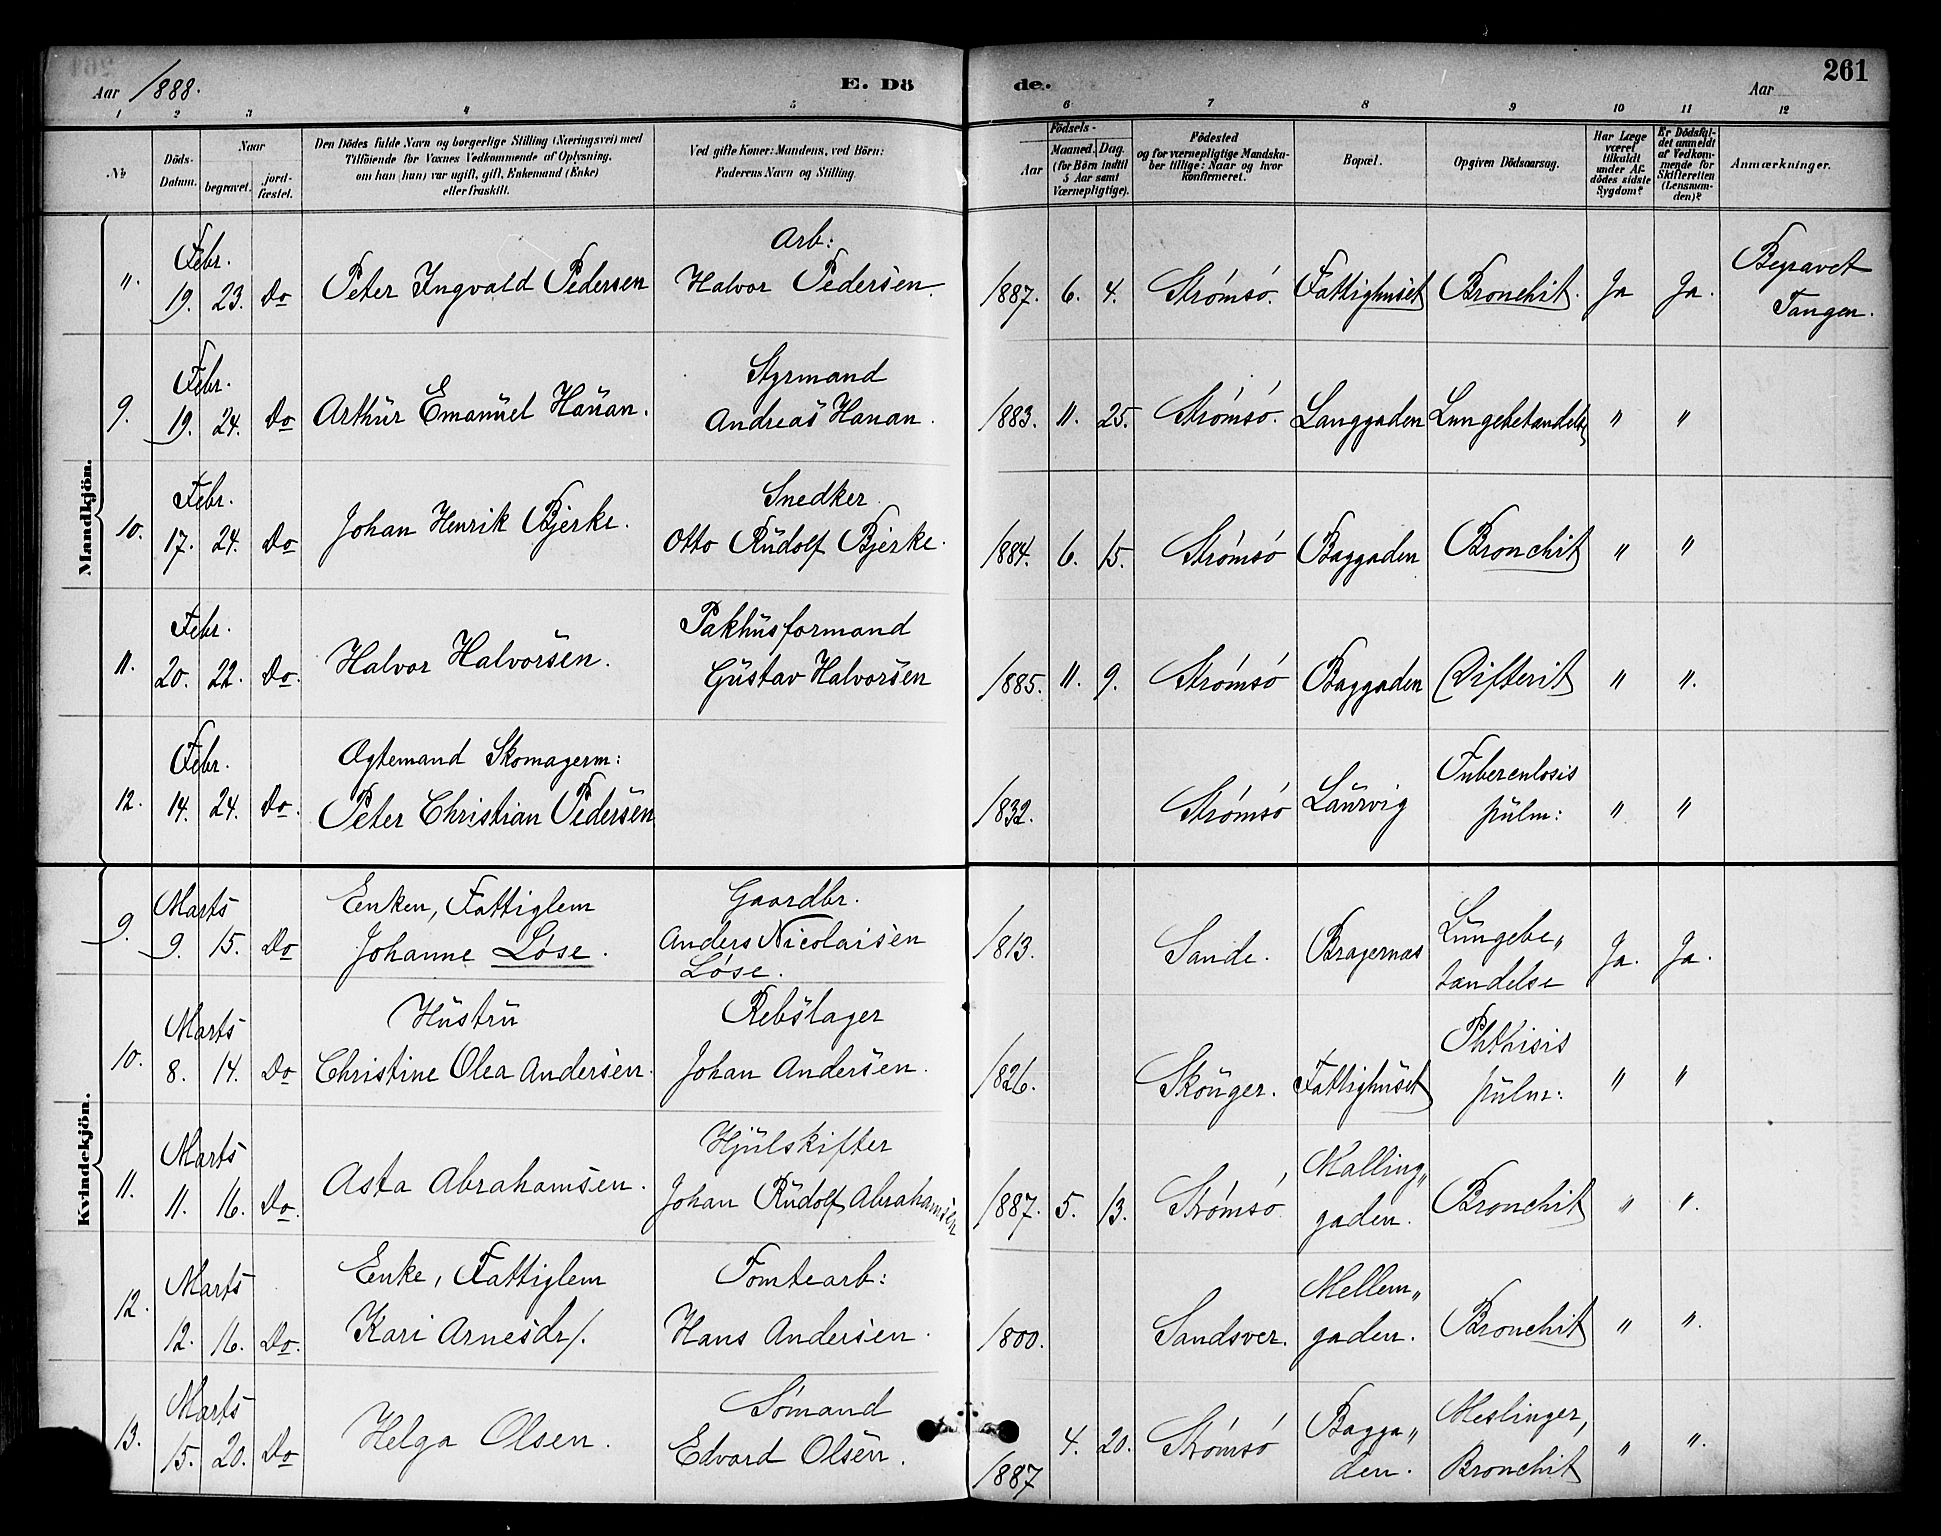 Aar 1888. E. Dö de. Aar 261
1 2 3 4 5 6 7 8 9 10 11 12
No
Döds-Datum.
Naar
begravet.
jord-fæstet.
Den Dödes fulde Navn og borgerlige Stilling (Næringsvei) med
Tilföiende for Voxnes Vedkommende af Oplysning,
om han (hun) var ugift, gift, Enkemand (Enke)
eller fraskilt.
Ved gifte Koner: Mandens, ved Börn:
Faderens Navn og Stilling.
Födsels-
Aar
Maaned. Dag.
(for Börn indtil
5 Aar samt
Værnepligtige).
Födested
og for værnepligtige Mandska-
ber tillige: Naar og hvor
konfirmeret.
Bopæl.
Opgiven Dödsaarsag.
Har Læge
været
tilkaldt
under Af-
dödes sidste
Sygdom?
Er Dödsfal-
det anmeldt
af Vedkom-
mende for
Skifteretten
(Lensman-
den)?
Anmærkninger.
Mandkjön.
Febr. Arb: Begravet
". 19. 23. Do Peter Ingvald Pedersen Halvor Pedersen. 1887. 6. 4. Strømsø. Fattighuset Bronchit. Ja Ja. Tangen.
Febr. Styrmand
9. 19. 24. Do Arthur Emanuel Hanan. Andreas Hanan. 1883. 11. 25. Strømsø. Langgaden Lungebetændelse " "
Febr. Snedker
10. 17. 24. Do Johan Henrik Bjerke. Otto Rudolf Bjerke. 1884. 6. 15. Strømsø Baggaden Bronchit " "
Febr. Pakhusformand
11. 20. 22. Do. Halvor Halvorsen. Gustav Halvorsen 1885. 11. 9. Strømsø Baggaden Difterit " ".
Febr. Ægtemand Skomagerm: Tuberculosis
12. 14. 24. Do. Peter Christian Pedersen 1832. Strømsø Laurvig pulm: " "
Kvindekjön.
Marts Enken, Fattiglem Gaardbr. Lungebe„
9. 9. 15. Do Johanne Løse. Anders Nicolaisen 1813. Sande. Bragernæs tændelse Ja. Ja.
Løse.
Marts Hustru Rebslager Phthisis
10. 8. 14. Do Christine Olea Andersen. Johan Andersen. 1826. Skouger. Fattighuset pulm: " "
Marts Hjulskifter Malling„
11. 11. 16. Do. Asta Abrahamsen. Johan Rudolf Abrahamsen 1887. 5. 13. Strømsø gaden. Bronchit " ".
Marts Enke, Fattiglem Tomtearb: Mellem„
12. 12. 16. Do. Kari Arnesdr/. Hans Andersen. 1800. Sandsver. gaden. Bronchit " ".
Marts Sømand Bagga„ Meslinger,
13. 15. 20. Do Helga Olsen. Edvard Olsen. 1887 4. 20. Strømsø den. Bronchit " ".